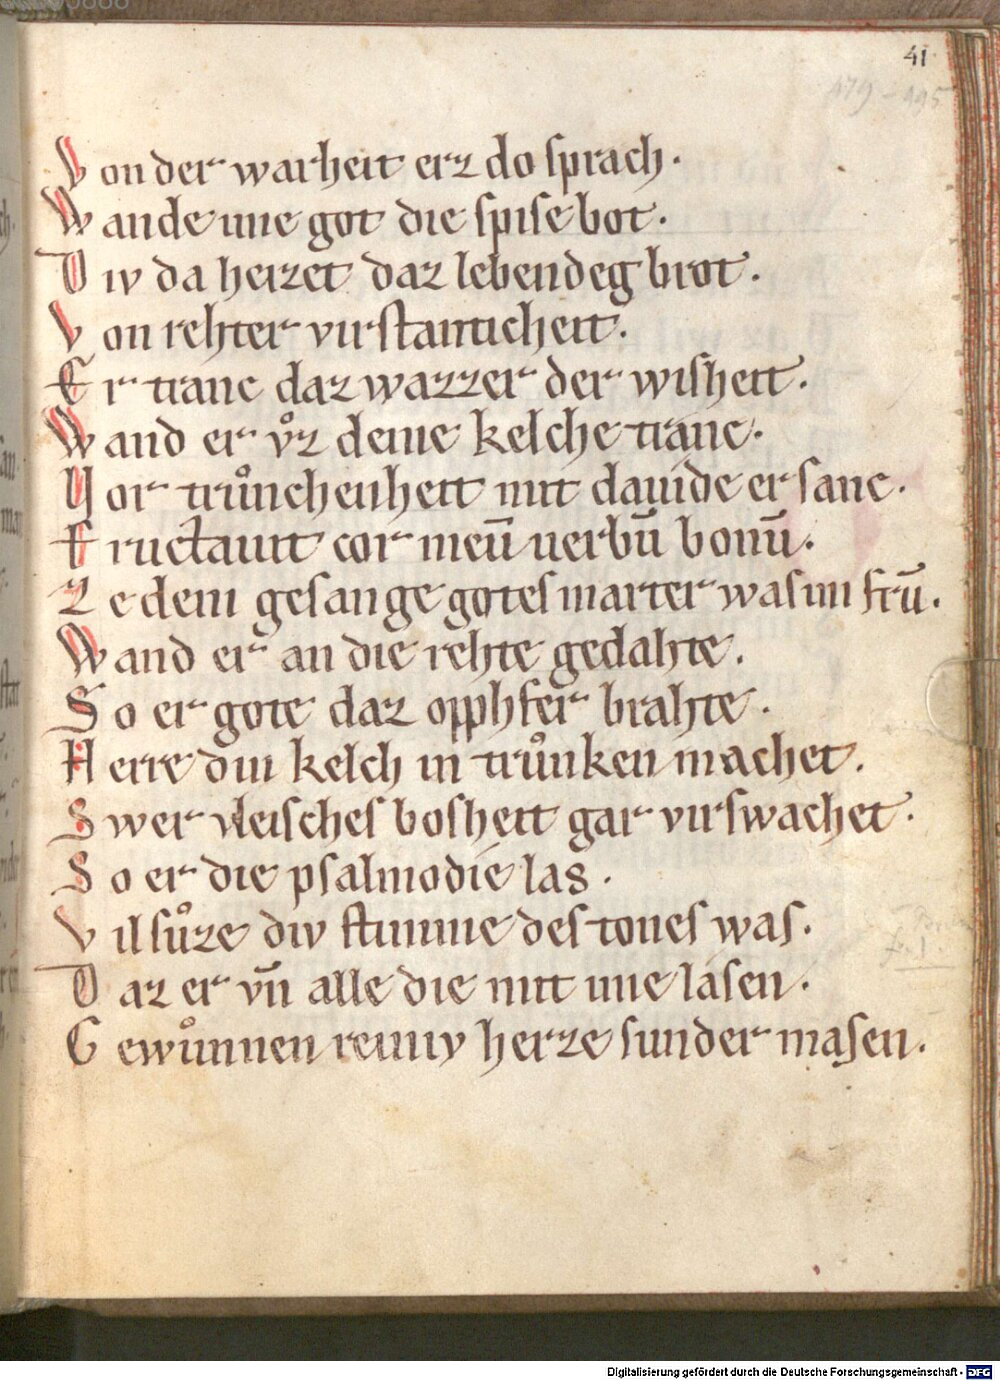 41
179 - 195
Von der warheit erz do sprach.
Wande ime got die spise bot.
Div da heizet daz lebendeg brot.
Von rehter virstanticheit.
Er tranc daz wazzer der wisheit.
Wand er vͦz deme kelche tranc.
Vor trůnchenheit mit dauide er sanc.
Eructauit cor meū uerbū bonū.
Ze dem gesange gotes marter was im frū.
Wand er an die rehte gedahte.
So er gote daz opphfer brahte.
Herre din kelch in trůnken machet.
Swer vleisches bosheit gar virswachet.
So er die psalmodie las.
Vil sůze div stimme des tones was.
Daz er vn̄ alle die mit ime lasen.
Gewůnnen reiniv herze sunder masen.
Digitalisierung gefördert durch die Deutsche Forschungsgemeinschaft - DFG